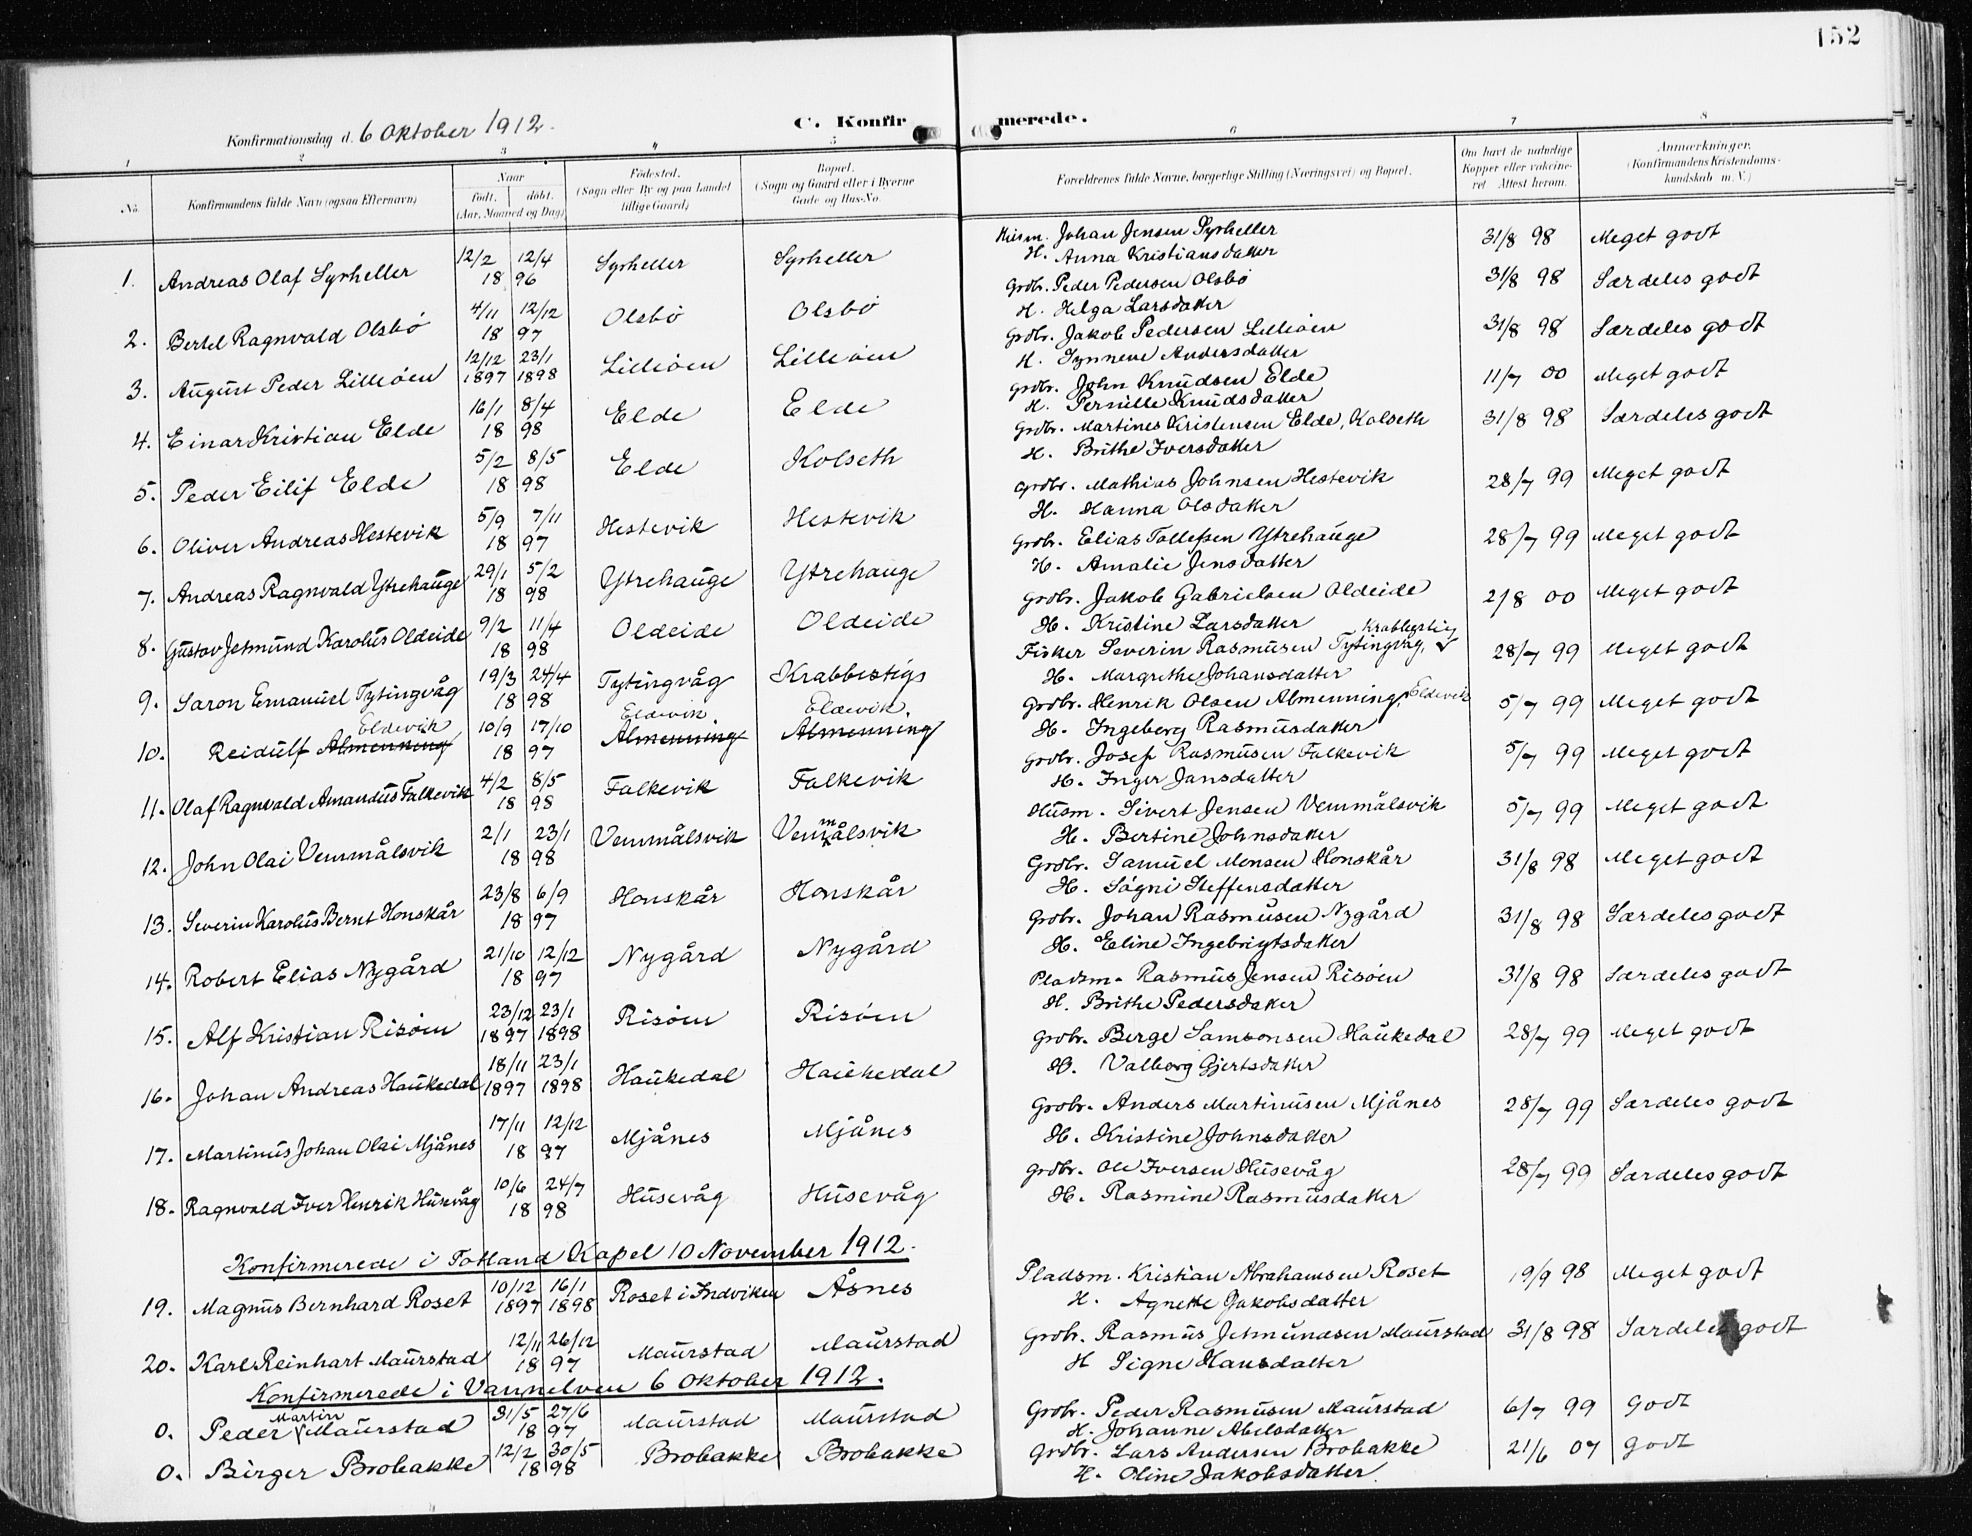 152
Konfirmationsdag d. 6 Oktober 1912. C. Konfirmerede.
1 2 3 4 5 6 7 8
No. Konfirmandens fulde Navn (ogsaa Efternavn) Naar født. døbt. (Aar, Maaned og Dag) Fødested. (Sogn eller By og paa Landet tillige Gaard) Bopæl. (Sogn og Gaard eller i Byerne Gade og Hus-No. Forældrenes fulde Navne, borgerlige Stilling (Næringsvei) og Bopæl. Om havt de naturlige Kopper eller vakcineret Attest herom. Anmærkninger. (Konfirmandens Kristendomskundskab m. V.)
1. Andreas Olaf Syrheller 12/2 12/4 1896 Syrheller Syrheller Husm. Johan Jensen Syrheller 31/8 98 Meget godt
H. Anna Kristiansdatter
2. Bertel Ragnvald Olsbø 4/11 12/12 1897 Olsbø Olsbø Grdbr. Peder Pedersen Olsbø 31/8 98 Særdeles godt
H. Helga Larsdatter
3. August Peder Lilleøen 12/12 1897 23/1 1898 Lilleøen Lilleøen Grdbr. Jakob Pedersen Lilleøen 31/8 98 Særdeles godt
H. Synneve Andersdatter
4. Einar Kristian Elde 16/1 8/4 1898 Elde Elde Grdbr. John Knudsen Elde 11/7 00 Meget godt
H. Pernille Knudsdatter
5. Peder Eilif Elde 5/2 8/5 1898 Elde Kolseth Grdbr. Martines Kristensen Elde, Kolseth 31/8 98 Særdeles godt
H. Brithe Iversdatter
6. Oliver Andreas Hestevik 5/9 7/11 1897 Hestevik Hestevik Grdbr. Mathias Johnsen Hestevik 28/7 99 Meget godt
H. Hanna Olsdatter
7. Andreas Ragnvald Ytrehauge 29/1 5/2 1898 Ytrehauge Ytrehauge Grdbr. Elias Tollefsen Ytrehauge 28/7 99 Meget godt
H. Amalie Jensdatter
8. Gustav Jetmund Karolus Oldeide 9/2 11/4 1898 Oldeide Oldeide Grdbr. Jakob Gabrielsen Oldeide 2/8 00 Meget godt
H. Kristine Larsdatter
9. Saron Emanuel Tytingvåg 19/3 24/4 1898 Tytingvåg Krabbestigs Fisker Severin Rasmusen Tytingvåg, 28/7 99 Meget godt
H. Margrethe Johansdatter
10. Reidulf Almenning Eldevik 10/9 17/10 1897 Almenning Eldevik. Almenning Eldevik. Grdbr. Henrik Olsen Almenning, Eldevik 5/7 99 Meget godt
H. Ingeberg Rasmusdatter
11. Olaf Ragnvald Amandus Falkevik 4/2 8/5 1898 Falkevik Falkevik Grdbr. Josef Rasmusen Falkevik 5/7 99 Meget godt
H. Inger Jansdatter
12. John Olai Vemmålsvik 2/1 23/1 1898 Vemmålsvik Vemmålsvik Husm. Sivert Jensen Vemmålsvik 5/7 99 Meget godt
H. Bertine Johnsdatter
13. Severin Karolus Bernt Honskår 23/8 6/9 1897 Honskår Honskår Grdbr. Samuel Monsen Honskår 31/8 98 Meget godt
H. Søgni Steffensdatter
14. Robert Elias Nygård 21/10 12/12 1897 Nygård Nygård Grdbr. Johan Rasmusen Nygård 31/8 98 Særdeles godt
H. Eline Ingebrigtsdatter
15. Alf Kristian Risøen 23/12 1897 23/1 1898 Risøen Risøen Pladsm. Rasmus Jensen Risøen 31/8 98 Særdeles godt
H. Brithe Pedersdatter
16. Johan Andreas Haukedal 18/11 1897 23/1 1898 Haukedal Haukedal Grdbr. Berge Samsonsen Haukedal 28/7 99 Meget godt
H. Valborg Gjertsdatter
17. Martinus Johan Olai Mjånes 17/11 12/12 1897 Mjånes Mjånes Grdbr. Anders Martinusen Mjånes 28/7 99 Særdeles godt
H. Kristine Johnsdatter
18. Ragnvald Iver Henrik Husevåg 10/6 24/7 1898 Husevåg Husevåg Grdbr. Ole Iversen Husevåg 28/7 99 Særdeles godt
H. Rasmine Rasmusdatter
Konfirmerede i Totland Kapel 10 November 1912.
19. Magnus Bernhard Roset 10/12 1897 16/1 1898 Roset i Indviken Åsnes Pladsm. Kristian Abrahamsen Roset 19/9 98 Meget godt
H. Agnethe Jakobsdatter
20. Karl Reinhart Maurstad 12/11 26/12 1897 Maurstad Maurstad Grdbr. Rasmus Jetmundsen Maurstad 31/8 98 Særdeles godt
H Signe Hansdatter
Konfirmerede i Vannelven 6 Oktober 1912.
0. Peder Martin Maurstad 31/5 27/6 1897 Maurstad Maurstad Grdbr. Peder Rasmusen Maurstad 6/7 99 Godt
H. Johanne Abelsdatter
0. Birger Brobakke 12/2 30/5 1898 Brobakke Brobakke Grdbr. Lars Andersen Brobakke 21/6 07 Godt
H. Oline Jakobsdatter.